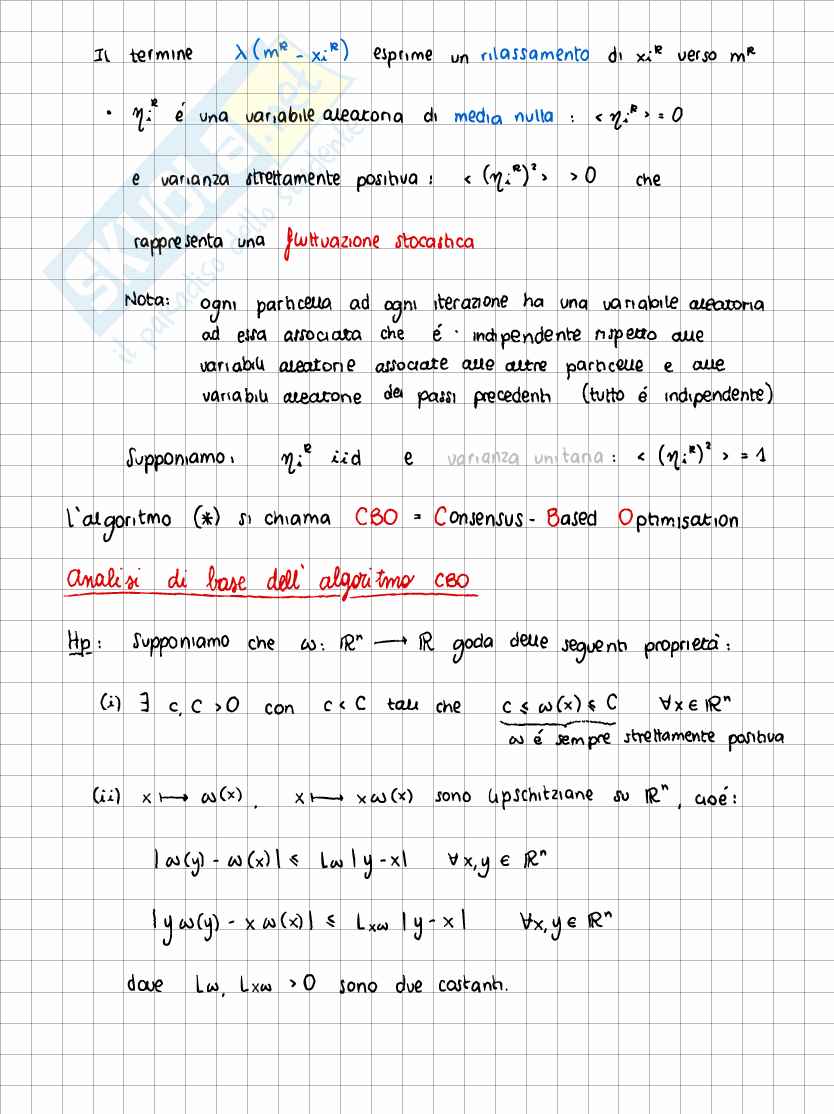 Il termine λ(mᴿ - xiᴿ) esprime un rilassamento di xiᴿ verso mᴿ
• ηiᴿ é una variabile aleatoria di media nulla : <ηiᴿ> = 0
e varianza strettamente positiva : <(ηiᴿ)²> > 0 che
rappresenta una fluttuazione stocastica
Nota: ogni particella ad ogni iterazione ha una variabile aleatoria
ad essa associata che é · indipendente rispetto alle
variabili aleatorie associate alle altre particelle e alle
variabili aleatorie dei passi precedenti (tutto é indipendente)
Supponiamo: ηiᴿ iid e varianza unitaria : <(ηiᴿ)²> = 1
L'algoritmo (*) si chiama CBO = Consensus - Based Optimisation
Analisi di base dell'algoritmo CBO
Hp: Supponiamo che ω: ℝⁿ ⟶ ℝ goda delle seguenti proprietà:
(i) ∃ c, C > 0 con c < C tali che c ≤ ω(x) ≤ C ∀x ∈ ℝⁿ
ω é sempre strettamente positiva
(ii) x ⟼ ω(x), x ⟼ xω(x) sono lipschitziane su ℝⁿ, cioé:
|ω(y) - ω(x)| ≤ Lω |y - x| ∀x,y ∈ ℝⁿ
|yω(y) - xω(x)| ≤ Lxω |y - x| ∀x,y ∈ ℝⁿ
dove Lω, Lxω > 0 sono due costanti.
SKUOLA.net
il paradiso dello studente